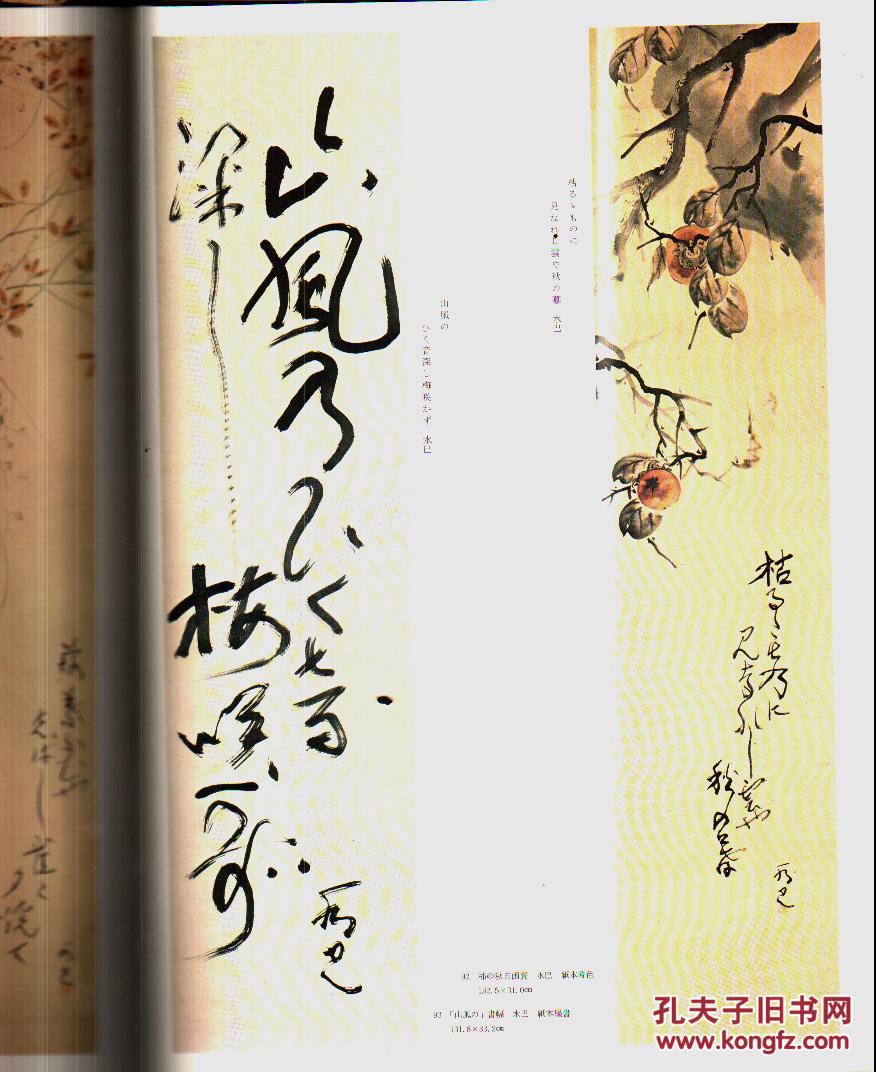 枯るゝものに
見なれし雲や秋の暮 水巴
枯るゝものに
見なれし雲や
秋の暮
水巴
山風の
ひく音深し梅咲かず 水巴
山風のひく音
深し
梅咲かず
水巴
92 柿の秋自画賛 水巴 紙本着色
132.5×31.0cm
93 「山風の」書幅 水巴 紙本墨書
131.8×33.2cm
孔夫子旧书网
www.kongfz.com